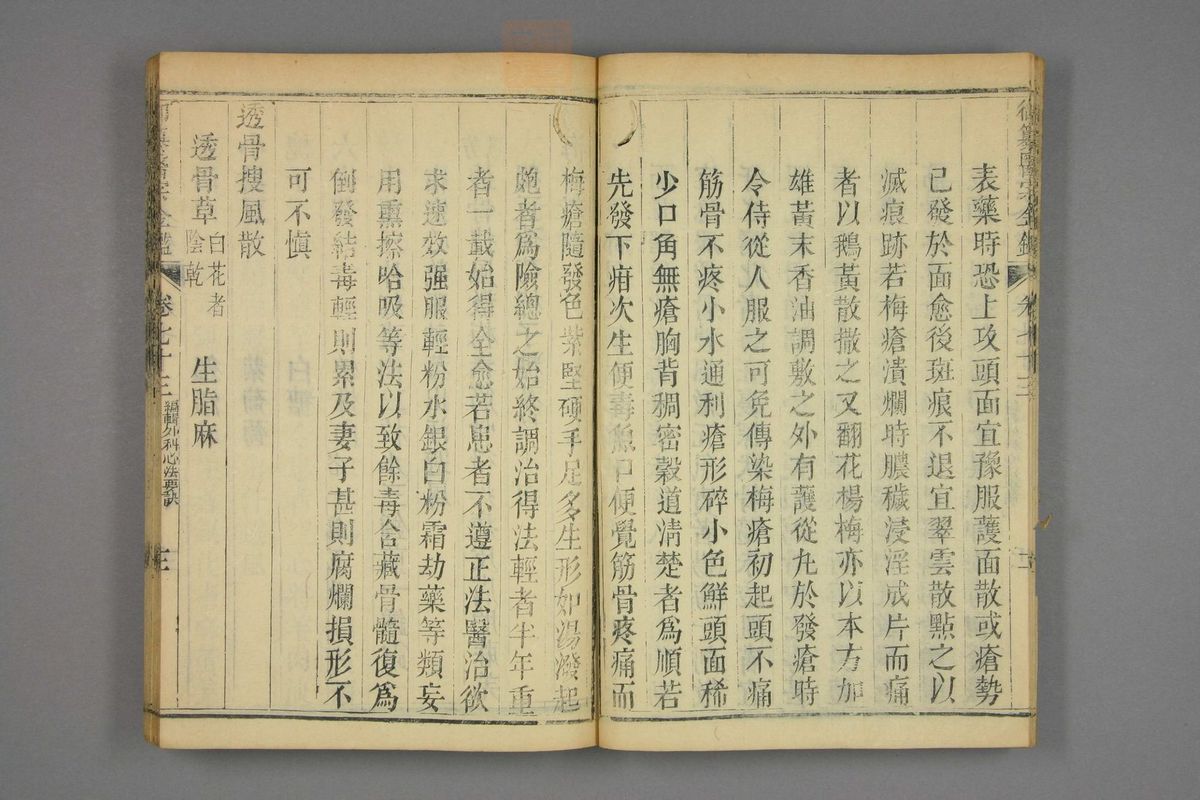 表藥時恐上攻頭面宜豫服護面散或瘡勢
已發於面愈後斑痕不退宜翠雲散點之以
滅痕跡若梅瘡潰爛時膿穢浸淫成片而痛
者以鵝黃散撒之又翻花楊梅亦以本方加
雄黃末香油調敷之外有護從丸於發瘡時
令侍從人服之可免傳染梅瘡初起頭不痛
筋骨不疼小水通利瘡形碎小色鮮頭面稀
少口角無瘡胸背稠密穀道清楚者爲順若
先發下疳次生便毒魚口便覺筋骨疼痛而
梅瘡隨發色紫堅硬手足多生形如湯潑起
皰者爲險總之始終調治得法輕者半年重
者一載始得全愈若患者不遵正法醫治欲
求速效强服輕粉水銀白粉霜劫藥等類妄
用熏擦哈吸等法以致餘毒含藏骨髓復爲
倒發結毒輕則累及妻子甚則腐爛損形不
可不慎
透骨搜風散
透骨草白花者陰乾 生脂麻
御纂醫宗金鑑 卷七十三 編輯外科心法要訣